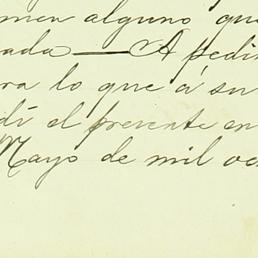 men alguno que
rada — A pedi
ra lo que á su
dí el presente en
Mayo de mil oc